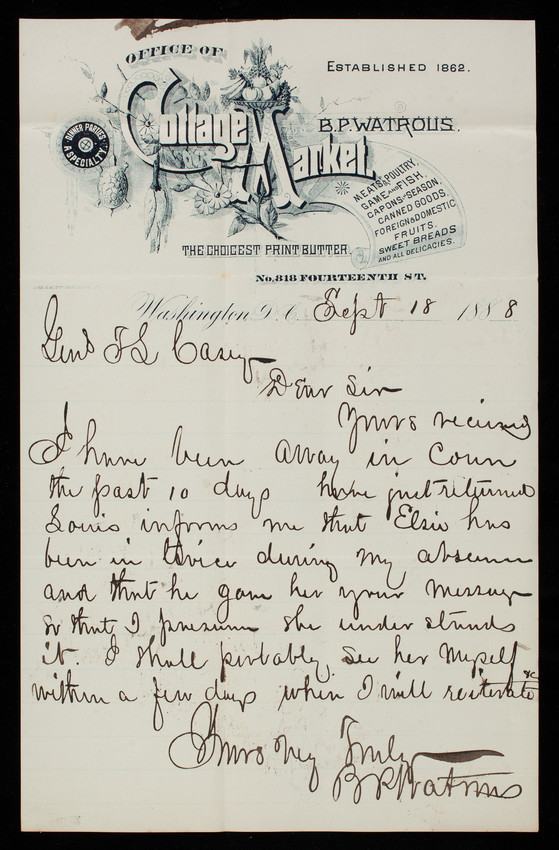 OFFICE OF
ESTABLISHED 1862.
Cottage Market.
B.P. WATROUS.
DINNER PARTIES A SPECIALTY.
MEATS & POULTRY,
GAME AND FISH,
CAPONS IN SEASON,
CANNED GOODS,
FOREIGN & DOMESTIC
FRUITS,
SWEET BREADS
AND ALL DELICACIES.
THE CHOICEST PRINT BUTTER.
No. 818 FOURTEENTH ST.
Washington D.C. Sept 18 1888
Genl T L Casey
Dear Sir
Yours received
I have been away in Conn
the past 10 days have just returned
Louis informs me that Elsie has
been in twice during my absence
and that he gave her your message
so that I presume she understands
it. I shall probably see her myself
within a few days when I will reiterate &c
Yours Very Truly
B P Watrous